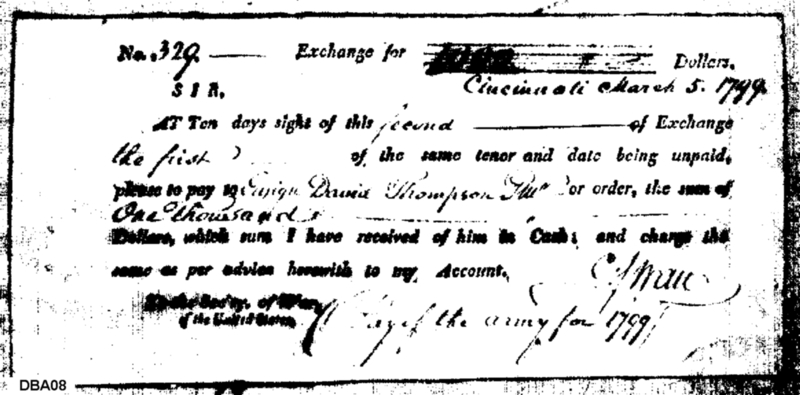 No. 329. Exchange for 1000 Dollars.
Cincinnati March 5. 1799.
SIR,
AT Ten days sight of this second of Exchange
the first of the same tenor and date being unpaid,
please to pay to Ensign David Thompson or order, the sum of
One thousand
Dollars, which sum I have received of him in Cash; and charge the
same as per advice herewith to my Account.
C Swan
To the Sec'ry. of War,
of the United States,
Pay of the army for 1799
DBA08